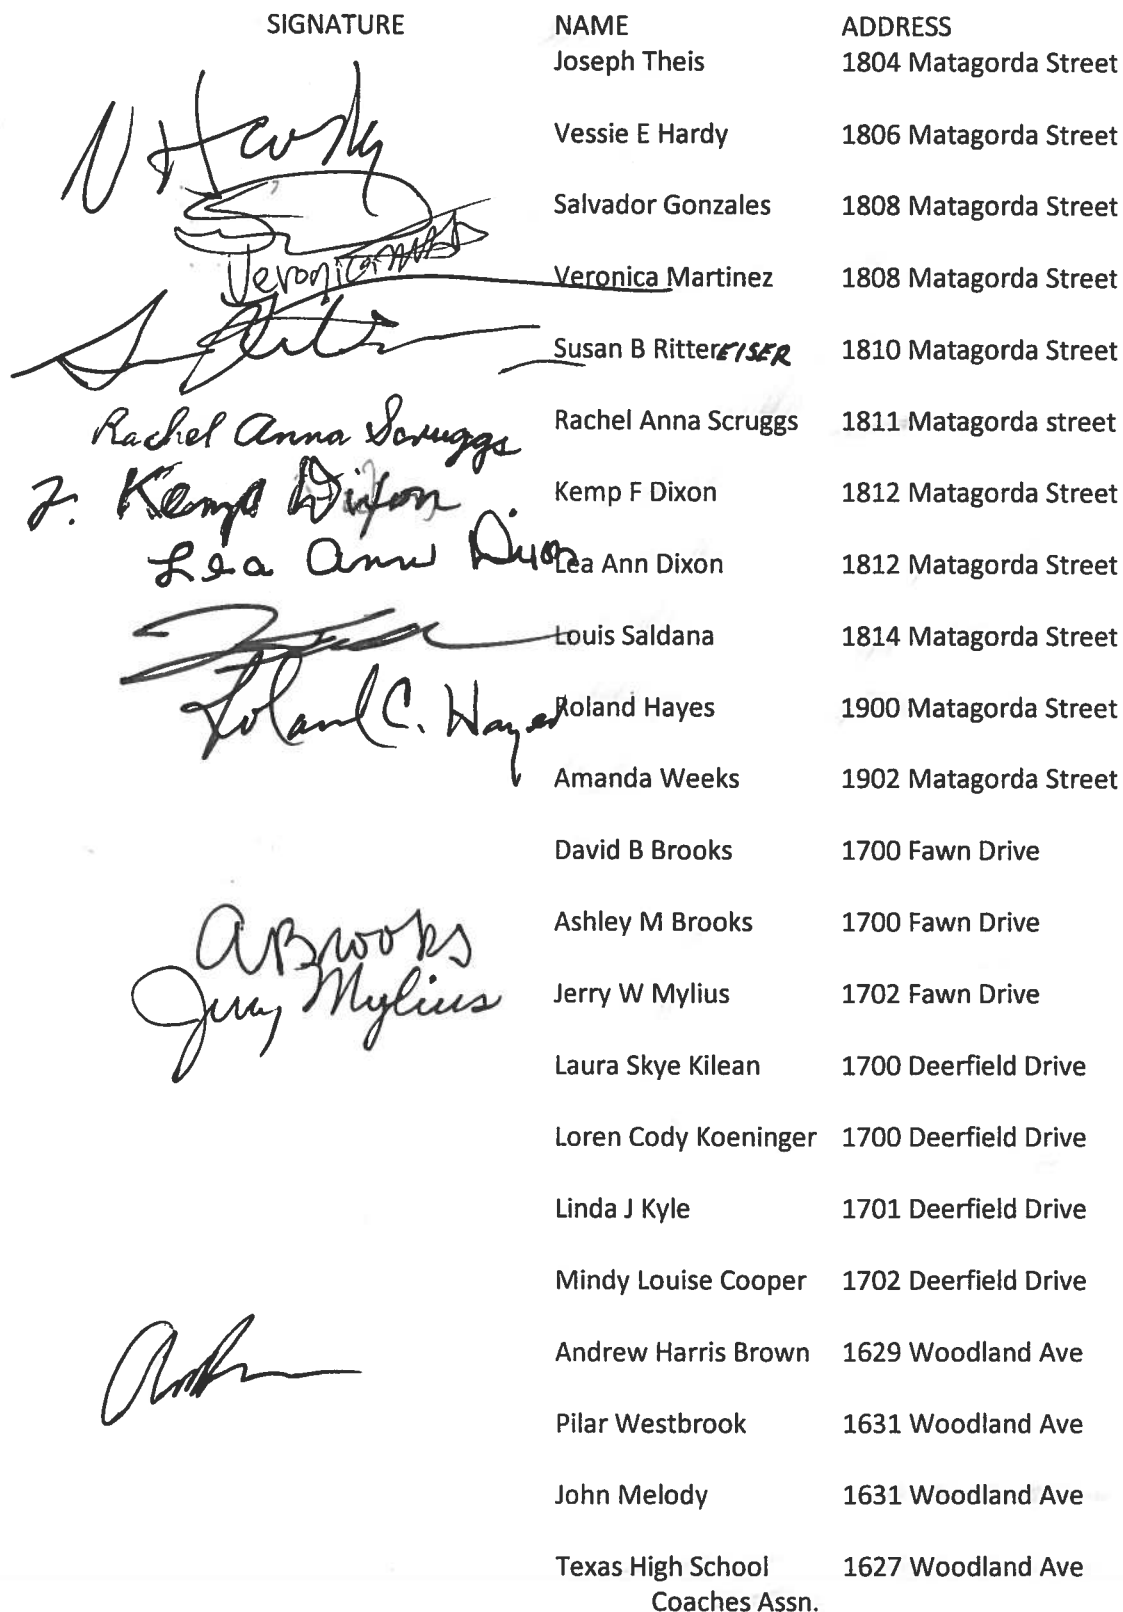 SIGNATURE NAME ADDRESS
Joseph Theis 1804 Matagorda Street
V Hardy Vessie E Hardy 1806 Matagorda Street
Salvador Gonzales 1808 Matagorda Street
Veronica Veronica Martinez 1808 Matagorda Street
Susan B RitterEISER 1810 Matagorda Street
Rachel Anna Scruggs Rachel Anna Scruggs 1811 Matagorda street
F. Kemp Dixon Kemp F Dixon 1812 Matagorda Street
Lea Ann Dixon Lea Ann Dixon 1812 Matagorda Street
Louis Saldana 1814 Matagorda Street
Roland C. Hayes Roland Hayes 1900 Matagorda Street
Amanda Weeks 1902 Matagorda Street
David B Brooks 1700 Fawn Drive
A Brooks Ashley M Brooks 1700 Fawn Drive
Jerry Mylius Jerry W Mylius 1702 Fawn Drive
Laura Skye Kilean 1700 Deerfield Drive
Loren Cody Koeninger 1700 Deerfield Drive
Linda J Kyle 1701 Deerfield Drive
Mindy Louise Cooper 1702 Deerfield Drive
Andrew Harris Brown 1629 Woodland Ave
Pilar Westbrook 1631 Woodland Ave
John Melody 1631 Woodland Ave
Texas High School 1627 Woodland Ave
Coaches Assn.